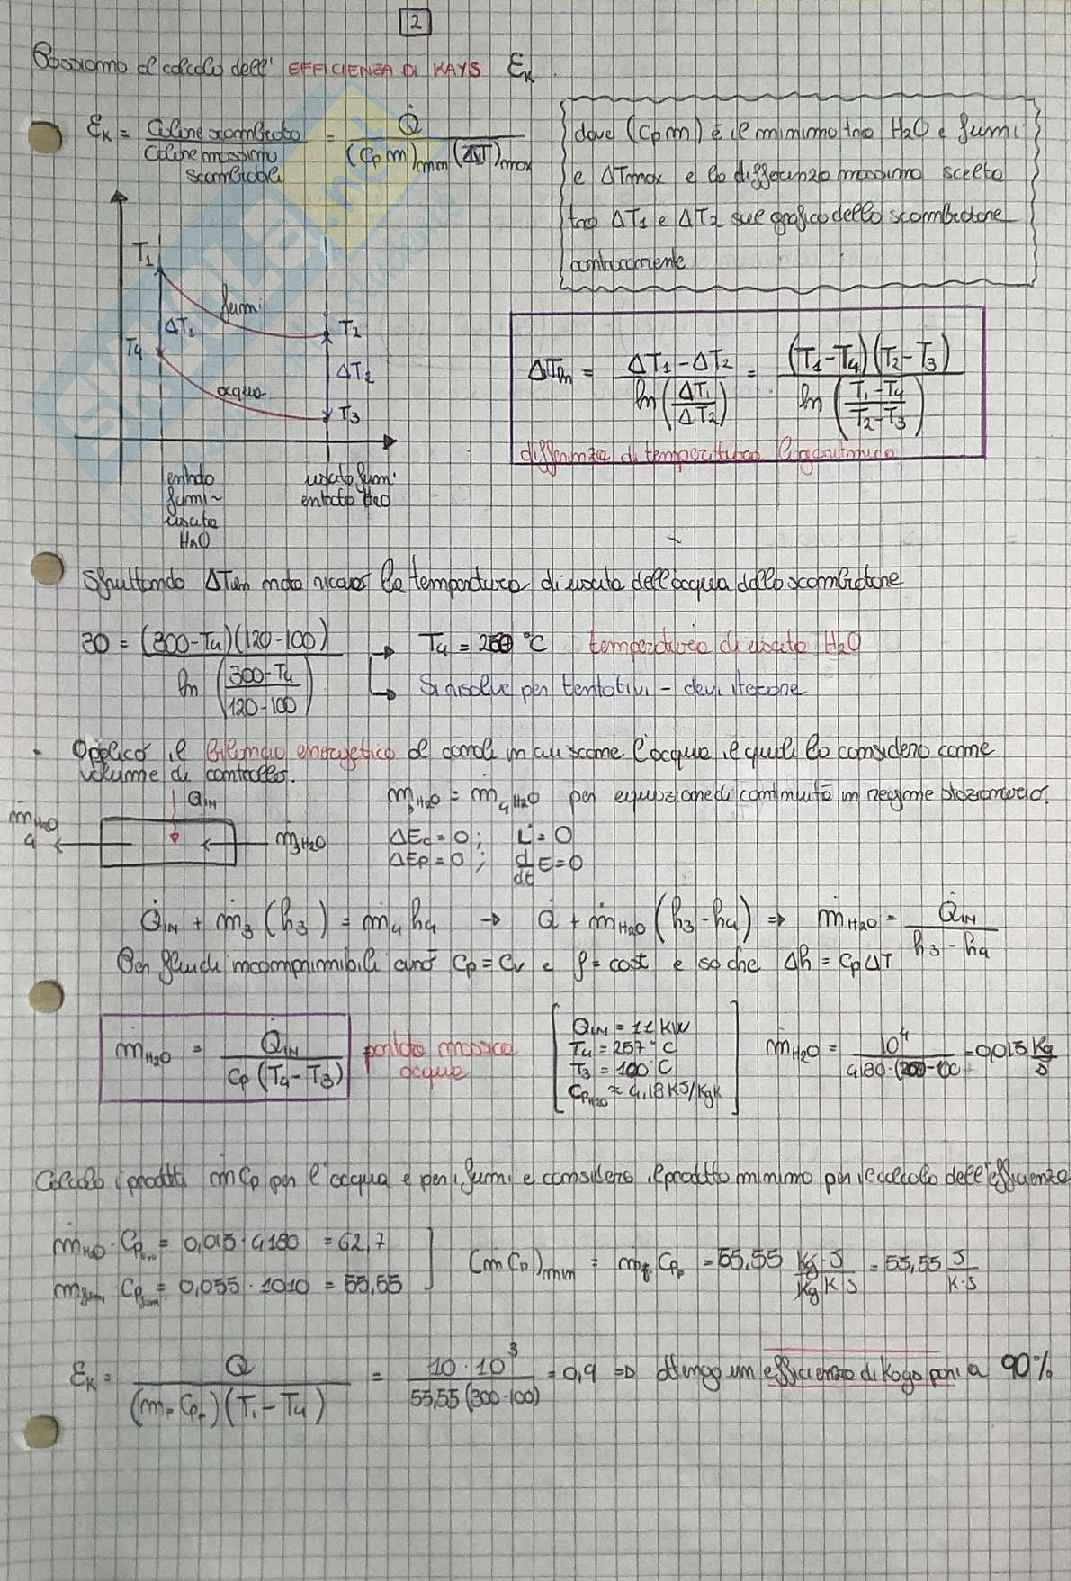 2
Passiamo al calcolo dell' EFFICIENZA DI KAYS εK.
εK = Calore scambiato / Calore massimo scambiabile = Q̇ / (Cp ṁ)min (ΔT)max
dove (Cp ṁ) è il minimo tra H2O e fumi
e ΔTmax è la differenza massima scelta
tra ΔT1 e ΔT2 sul grafico dello scambiatore
controcorrente
T1
fumi
ΔT1
T2
T4
ΔT2
acqua
T3
entrata fumi ~ uscita H2O
uscita fumi entrata H2O
ΔTlm = ΔT1 - ΔT2 / ln(ΔT1/ΔT2) = (T1-T4)(T2-T3) / ln(T1-T4/T2-T3)
differenza di temperatura logaritmica
Sfruttando ΔTlm nota ricavo la temperatura di uscita dell'acqua dallo scambiatore
30 = (300-T4)(120-100) / ln(300-T4/120-100) → T4 = 260 °C temperatura di uscita H2O
→ Si risolve per tentativi - devi iterare
• Applico il bilancio energetico al canale in cui scorre l'acqua, il quale lo considero come
volume di controllo.
Q̇IN
ṁH2O 4
ṁ3H2O
ṁ3H2O = ṁ4H2O per equazione di continuità in regime stazionario.
ΔEc = 0 ; L̇ = 0
ΔEp = 0 ; d/dt E = 0
Q̇IN + ṁ3 (h3) = ṁ4 h4 → Q̇ + ṁH2O (h3-h4) ⇒ ṁH2O = Q̇IN / h3-h4
Per fluidi incomprimibili avrò Cp = Cv e ρ = cost e so che Δh = cpΔT
ṁH2O = Q̇IN / Cp (T4-T3) portata massica acqua
Q̇IN = 11 kW
T4 = 257 °C
T3 = 100 °C
CpH2O ≈ 4,18 KJ/KgK
ṁH2O = 10^4 / 4180·(200-100 = 0,015 Kg/s
Calcolo i prodotti ṁCp per l'acqua e per i fumi e considero il prodotto minimo per il calcolo dell'efficienza
ṁH2O · CpH2O = 0,015 · 4180 = 62,7
ṁfumi CpFumi = 0,055 · 1010 = 55,55
(ṁ Cp)min = ṁf Cpf = 55,55 Kg·J/Kg K s = 55,55 J/K·s
εK = Q̇ / (ṁF CpF)(T1-T4) = 10·10^3 / 55,55(300-100) = 0,9 ⇒ ottengo un efficienza di Kays pari a 90%